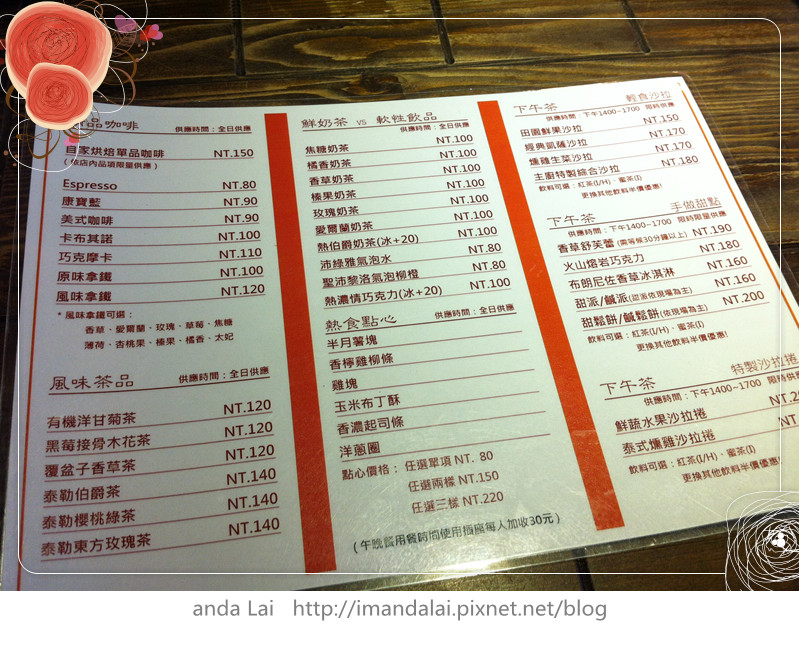 品咖啡 供應時間：全日供應
自家烘焙單品咖啡 NT.150
(依店內品項限量供應)
Espresso NT.80
康寶藍 NT.90
美式咖啡 NT.90
卡布其諾 NT.100
巧克摩卡 NT.110
原味拿鐵 NT.100
風味拿鐵 NT.120
* 風味拿鐵可選：
香草、愛爾蘭、玫瑰、草莓、焦糖
薄荷、杏桃果、榛果、橘香、太妃
風味茶品 供應時間：全日供應
有機洋甘菊茶 NT.120
黑莓接骨木花茶 NT.120
覆盆子香草茶 NT.120
泰勒伯爵茶 NT.140
泰勒櫻桃綠茶 NT.140
泰勒東方玫瑰茶 NT.140
鮮奶茶 VS 軟性飲品
供應時間：全日供應
焦糖奶茶 NT.100
橘香奶茶 NT.100
香草奶茶 NT.100
榛果奶茶 NT.100
玫瑰奶茶 NT.100
愛爾蘭奶茶 NT.100
熱伯爵奶茶(冰+20) NT.100
沛綠雅氣泡水 NT.80
聖沛黎洛氣泡柳橙 NT.80
熱濃情巧克力(冰+20) NT.100
熱食點心 供應時間：全日供應
半月薯塊
香檸雞柳條
雞塊
玉米布丁酥
香濃起司條
洋蔥圈
點心價格： 任選單項 NT. 80
任選兩樣 NT.150
任選三樣 NT.220
(午晚餐用餐時間使用插座每人加收30元)
下午茶 輕食沙拉
供應時間：下午1400~1700 限時供應
田園鮮果沙拉 NT.150
經典凱薩沙拉 NT.170
燻雞生菜沙拉 NT.170
主廚特製綜合沙拉 NT.180
飲料可選：紅茶(I/H)、蜜茶(I)
更換其他飲料半價優惠!
下午茶 手做甜點
供應時間：下午1400~1700 限時限量供應
香草舒芙蕾 (需等候30分鐘以上) NT.190
火山熔岩巧克力 NT.180
布朗尼佐香草冰淇淋 NT.160
甜派/鹹派(甜派依現場為主) NT.160
甜鬆餅/鹹鬆餅(依現場為主) NT.200
飲料可選：紅茶(I/H)、蜜茶(I)
更換其他飲料半價優惠!
下午茶 特製沙拉捲
供應時間：下午1400~1700 限時供
鮮蔬水果沙拉捲 NT.2
泰式燻雞沙拉捲 NT
飲料可選：紅茶(I/H)、蜜茶(I)
更換其他飲料半價優惠!
anda Lai http://imandalai.pixnet.net/blog